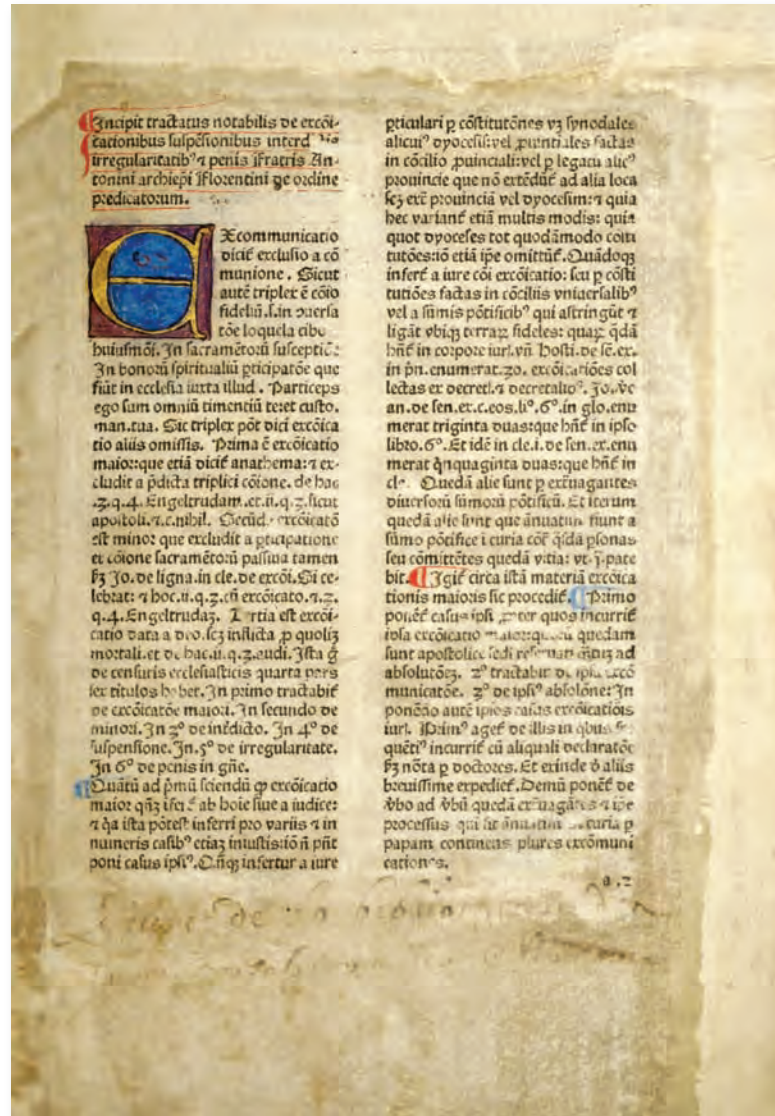 Incipit tractatus notabilis de excõi-
cationibus suspẽsionibus interd
irregularitatibꝰ ⁊ penis Fratris An-
tonini archiep̃i Florentini de ordine
predicatorum.
EXcommunicatio
dicit̃ exclusio a cõ
munione. Sicut
autẽ triplex ẽ cõio
fideliũ.s.in
tõe loquela cibo
huiusmõi. In sacramẽtorũ susceptiõe
In bonorũ spiritualiũ ꝑticipatõe que
fiũt in ecclesia iuxta illud. Particeps
ego sum omniũ timentiũ te:et custo.
man.tua. Sic triplex põt dici excõica
tio aliis omissis. Prima ẽ excõicatio
maior:que etiã dicit̃ anathema:⁊ ex-
cludit a p̃dicta triplici cõione. de hac
.3.q.4. Engeltrudam.et.ii.q.3.sicut
apostoli.⁊.c.nihil. Secũda excõicatõ
est minor que excludit a ꝑticipatione
et cõione sacramẽtorũ passiua tamen
ẜm Jo.de ligna.in cle.de excõi.Si ce-
lebrat:⁊ hoc.ii.q.3.cũ excõicato.⁊.3.
q.4.Engeltrudaꝫ. Tertia est excõi-
catio data a deo.scꝫ inflicta ꝓ quoliꝫ
mortali.et de hac.ii.q.3.audi.Ista g̃
de censuris ecclesiasticis quarta pars
sex titulos habet.In primo tractabit̃
de excõicatõe maiori.In secundo de
minori.In 3º de int̃dicto. In 4º de
suspensione.In.5º de irregularitate.
In 6º de penis in gñe.
Quãtũ ad p̃mũ sciendũ ꝙ excõicatio
maior qñꝫ infert̃ ab hoie siue a iudice:
⁊ q̃a ista põtest inferri pro variis ⁊ in
numeris casibꝰ etiaꝫ iniustis:iõ ñ pñt
poni casus ipsiꝰ.Qñqꝫ infertur a iure
ꝑticulari ꝑ cõstitutõnes vꝫ synodales
alicuiꝰ dyocesis:vel ꝓuintiales factas
in cõcilio ꝓuinciali:vel ꝑ legatũ alicꝰ
prouincie que nõ extẽdũt̃ ad alia loca
scꝫ ext̃ prouinciã vel dyocesim:⁊ quia
hec variant̃ etiã multis modis: quia
quot dyoceses tot quodãmodo cõsti
tutões:iõ etiã ip̃e omittũt̃.Quãdoqꝫ
infert̃ a iure cõi excõicatio: seu ꝑ cõsti
tutiões factas in cõciliis vniuersalibꝰ
vel a sũmis põtificibꝰ qui astringũt ⁊
ligãt vbiqꝫ terraꝝ fideles: quaꝝ q̃dã
hñt̃ in corpore iur. Hosti.de sẽ.ex.
in pñ.enumerat.30. excõicatiões col
lectas ex decret̃.⁊ decretalioꝰ. Jo.
an.de sen.ex.c.eos.liº.6º.in glo.enu
merat triginta duas:que hñt̃ in ipso
libro.6º.Et idẽ in cle.i.de sen.ex.enu
merat q̃nquaginta duas:que hñt̃ in
cle. Quedã alie sunt ꝑ extrauagantes
diuersorũ sũmorũ põtificũ. Et iterum
quedã alie sunt que ãnuatim fiunt a
sũmo põtifice ĩ curia cõt̃ q̃sdã ꝑsonas
seu cõmittẽtes quedã vitia: vt.ĩ.pate
bit. Igit̃ circa istã materiã excõica
tionis maioris sic procedit̃. Primo
ponẽt̃ casus ipsi propter quos incurrit̃
ipsa excõicatio maior: quedam
sunt apostolice sedi ad
absolutõeꝫ. 2º tractabit̃ de ipsa excõ
municatõe. 3º de ipsiꝰ absolõne:In
ponẽdo autẽ ipsos casus excõicatiõis
iuri. Primꝰ aget̃ de illis in qbus
quẽtiꝰ incurrit̃ cũ aliquali declaratõe
ẜm nõta ꝑ doctores. Et exinde ð aliis
breuissime expediet̃.Demũ ponẽt̃ de
v̾bo ad v̾bũ quedã extrauagãtes ⁊ ip̃e
processus qui fit ãnuatim curia ꝑ
papam continens plures excõmuni
cationes.
a.2